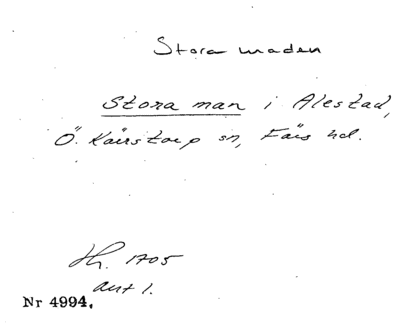 Stora maden
Stora man i Alestad,
Ö. Kärstorp sn, Färs hd.
Jh. 1705
akt 1.
Nr 4994.